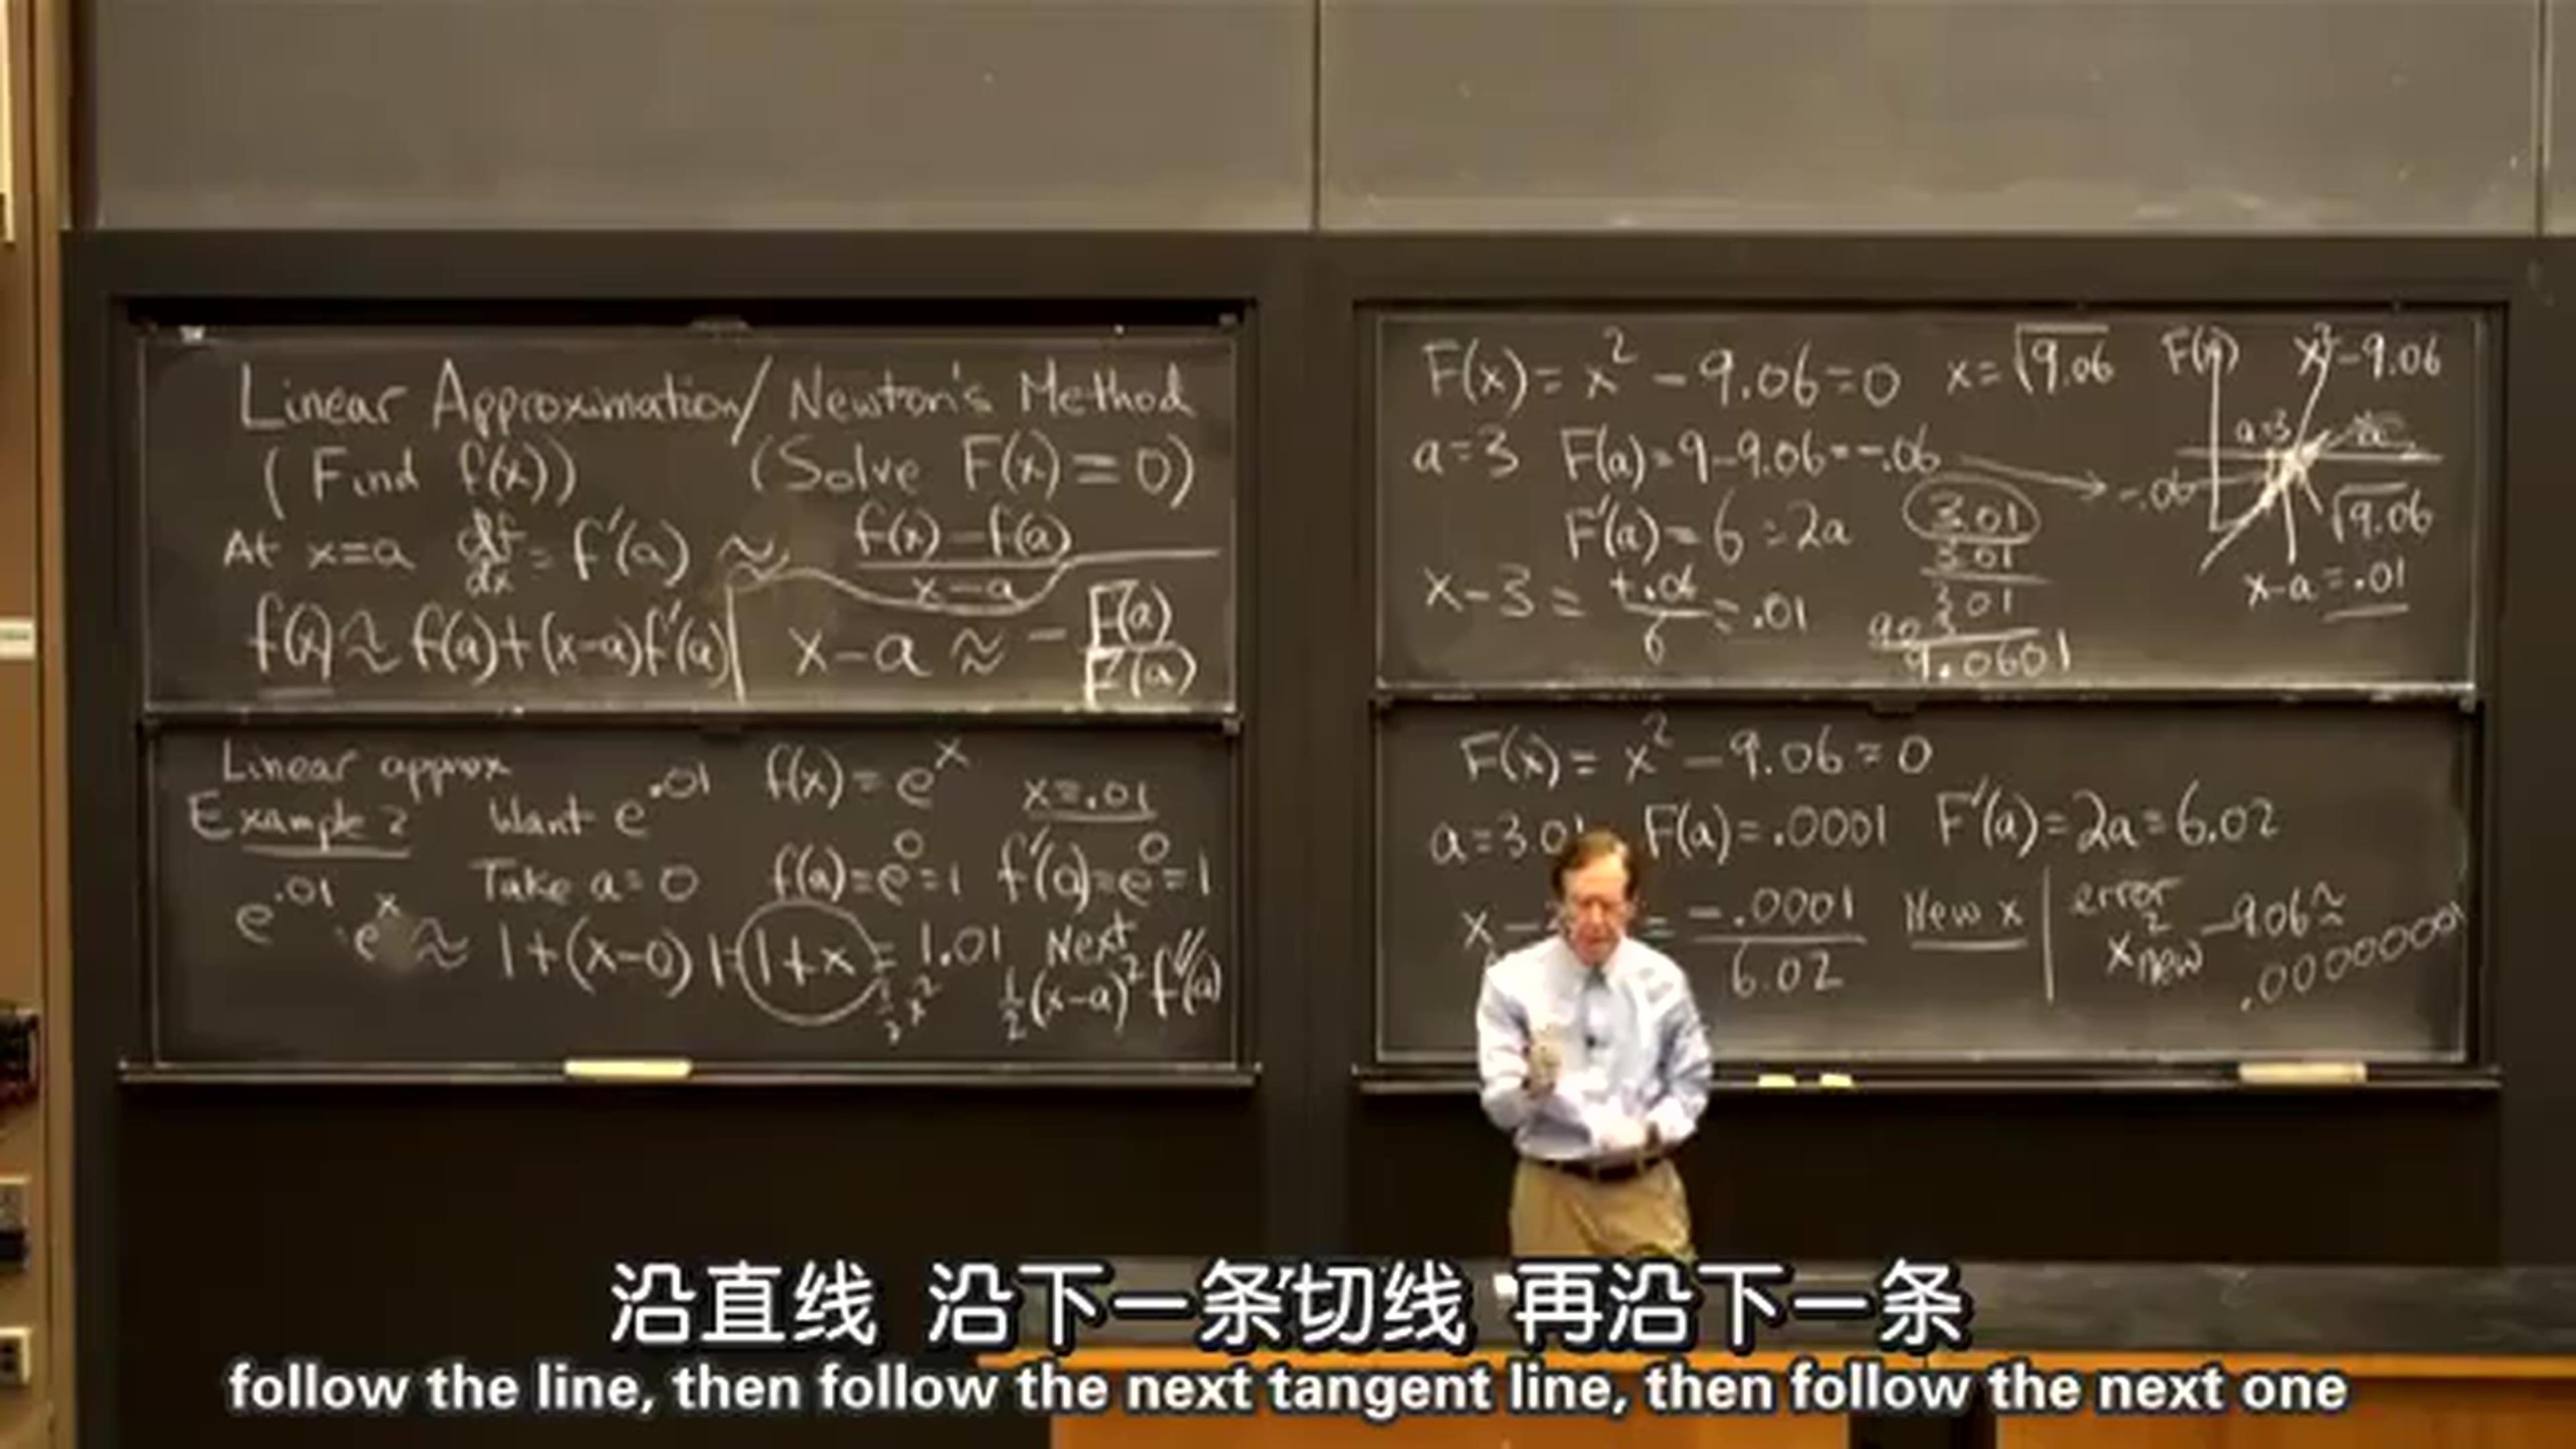 Linear Approximation/ Newton's Method
(Find f(x)) (Solve F(x) = 0)
At x=a df/dx = f'(a) ≈ f(x)-f(a)/x-a
f(x) ≈ f(a)+(x-a)f'(a) x-a ≈ - F(a)/F'(a)
Linear approx
Example 2 Want e^.01 f(x) = e^x x=.01
Take a=0 f(a)=e^0=1 f'(a)=e^0=1
e^.01 e^x ≈ 1+(x-0) 1= 1+x = 1.01 Next
1/2 x^2 1/2 (x-a)^2 f''(a)
F(x) = x^2 - 9.06=0 x=√9.06 F(x) x^2-9.06
a=3 F(a)=9-9.06=-.06 -.06 a=3
F'(a)=6=2a 3.01 √9.06
3.01
x-3 = +.06/6 = .01 301 x-a=.01
903
9.0601
F(x) = x^2 - 9.06 = 0
a=3.01 F(a)=.0001 F'(a)=2a=6.02
x- = -.0001/6.02 New x error
x^2 new -9.06 ≈
.00000001
沿直线 沿下一条切线 再沿下一条
follow the line, then follow the next tangent line, then follow the next one